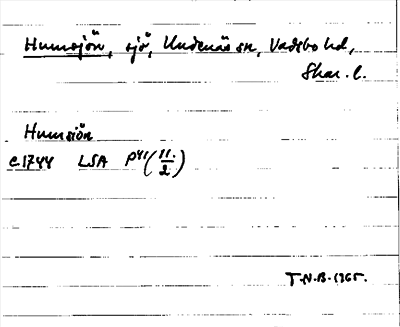 Humsjön, sjö, Undenäs sn, Vadsbo hd,
Skar. l.
Humsiön
c 1744 LSA P41 (11./2)
T.N.B. 1965.